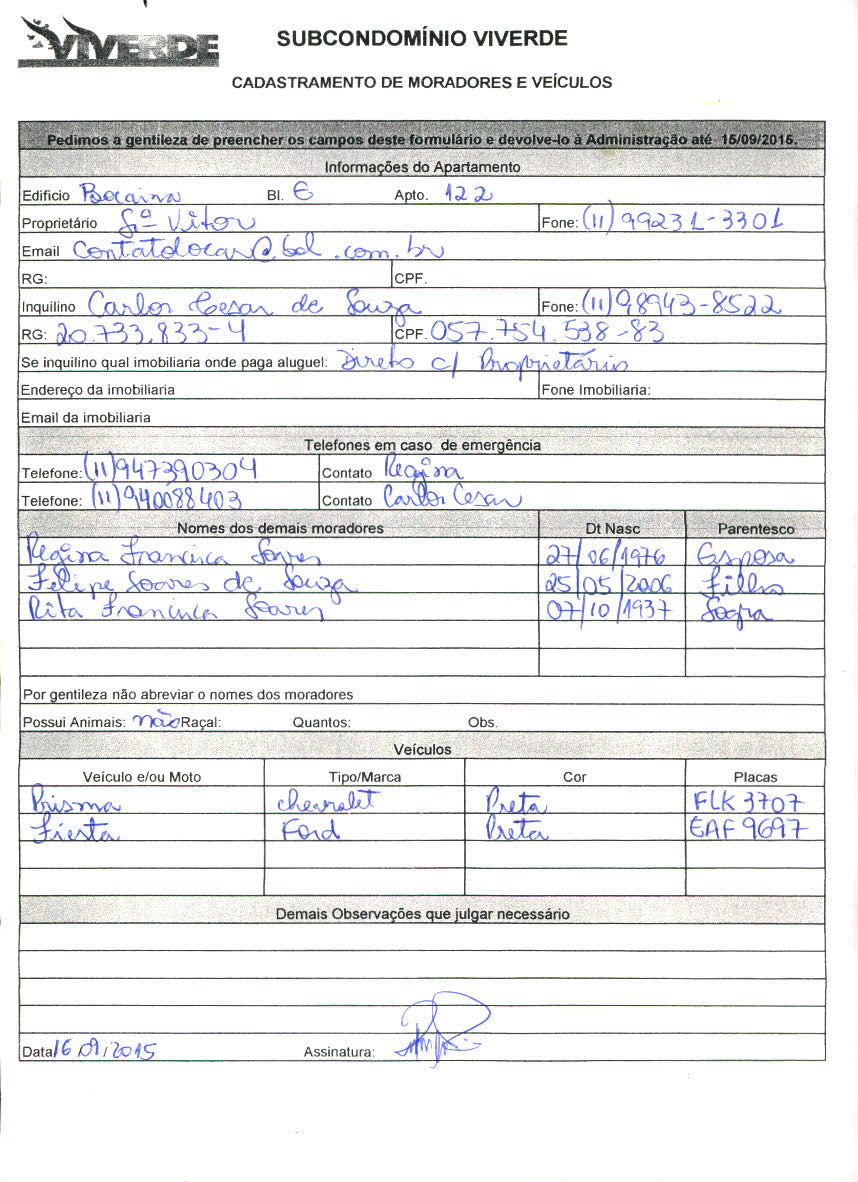 VIVERDE
SUBCONDOMÍNIO VIVERDE
CADASTRAMENTO DE MORADORES E VEÍCULOS
Pedimos a gentileza de preencher os campos deste formulário e devolve-lo à Administração até 15/09/2015.
Informações do Apartamento
Edificio Bocaina Bl. E Apto. 122
Proprietário Sº Vitor Fone: (11) 99231-3301
Email Contatolocar@bol.com.br
RG: CPF.
Inquilino Carlos Cesar de Souza Fone: (11) 98943-8522
RG: 20.733.833-4 CPF. 057.754.538-83
Se inquilino qual imobiliaria onde paga aluguel: Direto c/ Proprietário
Endereço da imobiliaria Fone Imobiliaria:
Email da imobiliaria
Telefones em caso de emergência
Telefone: (11) 947390304 Contato Regina
Telefone: (11) 940088403 Contato Carlos Cesar
Nomes dos demais moradores Dt Nasc Parentesco
Regina Francisca Soares 27/06/1976 Esposa
Felipe Soares de Souza 25/05/2006 Filho
Rita Francisca Soares 07/10/1937 Sogra
Por gentileza não abreviar o nomes dos moradores
Possui Animais: não Raçal: Quantos: Obs.
Veículos
Veículo e/ou Moto Tipo/Marca Cor Placas
Prisma Chevrolet Preta FLK 3707
Fiesta Ford Preta EAF 9697
Demais Observações que julgar necessário
Data 16/09/2015 Assinatura: